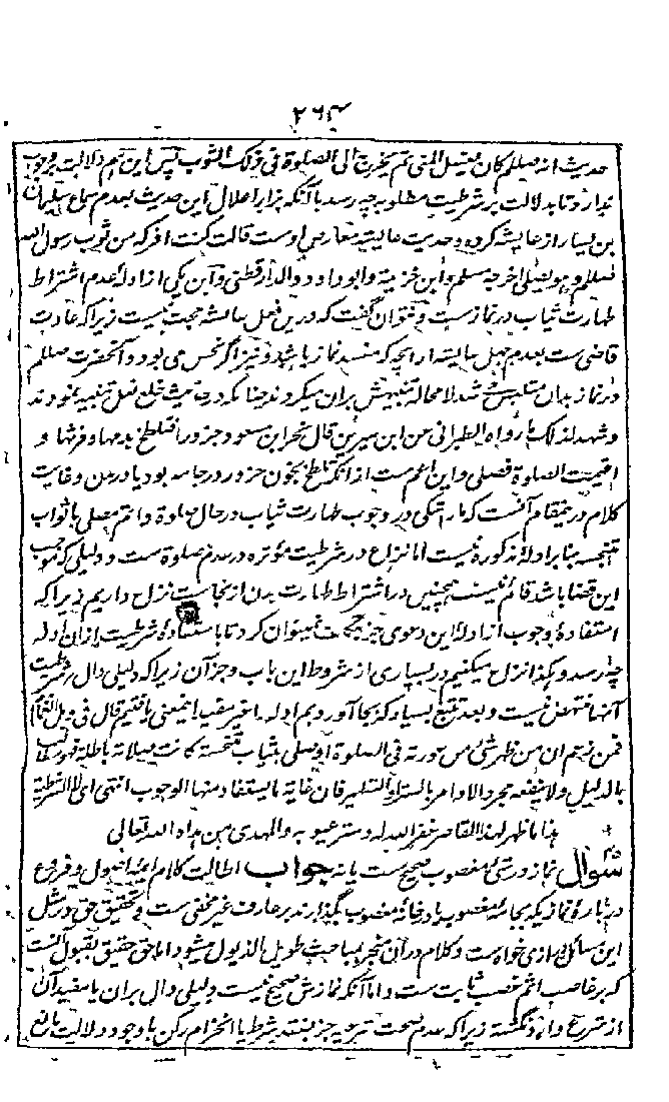 ۲۶۴
حدیث انه صلعم کان یغسل المنی ثم یخرج الی الصلوة فی ذلک الثوب پس این هم دلالت بر وجوب
ندارد تا بدلالت بر شرطیت مطلوبه چه رسد با آنکه بزار اعلال این حدیث بعدم سماع سلیمان
بن یسار از عایشه کرده و حدیث عایشه معارض اوست قالت کنت افرکه من ثوب رسول الله
صلعم و هو یصلی اخرجه مسلم و ابن خزیمة و ابو داود و الدارقطنی و این یکی از ادله عدم اشتراط
طهارت ثیاب در نماز ست و نتوان گفت که درین فعل عائشه حجت نیست زیرا که عادت
قاضی ست بعدم جهل عایشه از آنچه که مفسد نماز باشد و نیز اگر نجس می بود و آنحضرت صلعم
در نماز بدان متلبس شد لا محاله تنبیهش بران میکردند چنانکه در حدیث خلع نعل تنبیه نمودند
و شهد لذلک ما رواه الطبرانی عن ابن سیرین قال نحر ابن مسعود جزورا فتلطخ بدمها و فرثها و
اقیمت الصلوة فصلی و این اعم ست از آنکه تلطخ بخون جزور در جامه بود یا در بدن و غایت
کلام درین مقام آنست که ما را شکی در وجوب طهارت ثیاب در حال صلوة و اثم مصلی با ثواب
متنجسه بنابر ادله مذکوره نیست اما نزاع در شرطیت مؤثره در عدم صلوة ست و دلیلی که موجب
این قضا باشد قائم نیست همچنین در اشتراط طهارت بدن از نجاست نزاع داریم زیرا که
استفادهٔ وجوب از ادلهٔ این دعوی جز نمیتوان کرد تا باستفادهٔ شرطیت ازان ادله
چه رسد و هکذا نزاع میکنیم در بسیاری از شروط این باب و جز آن زیرا که دلیلی دال بر شرطیت
آنها منتهض نیست و بعد تتبع بسیار که بجا آوردیم ادله را غیر مفید اینمعنی یافتیم قال فی وبل الغمام
فمن زعم ان من ظهر شئ من عورته فی الصلوة او صلی بثیاب متنجسة کانت صلاته باطلة فهو مطالب
بالدلیل ولا ینفعه مجرد الاوامر بالستر او التطهیر فان غایة ما یستفاد منها الوجوب انتهی ای لا الشرطیة
هذا ما ظهر لهذا القاصر غفر الله له و ستر عیوبه والمهدی من هداه الله تعالی
سوال نماز در شئ مغصوب صحیح ست یا نه جواب اطالت کلام ایمهٔ اصول و فروع
دربارهٔ نمازیکه بجامهٔ مغصوب یا در خانهٔ مغصوب بگذارند بر عارف غیر مخفی ست و تحقیق حق در مثل
این مسائل درازی خواه ست و کلام در آن منجر بمباحث طویل الذیول میشود اما حق حقیق بقبول آنست
که بر غاصب اثم غصب ثابت ست و اما آنکه نمازش صحیح نیست دلیلی دال بران یا مفید آن
از شرع وارد نگشته زیرا که عدم صحت شرعیه جز بفقد شرط یا انخرام رکن با وجود دلالت